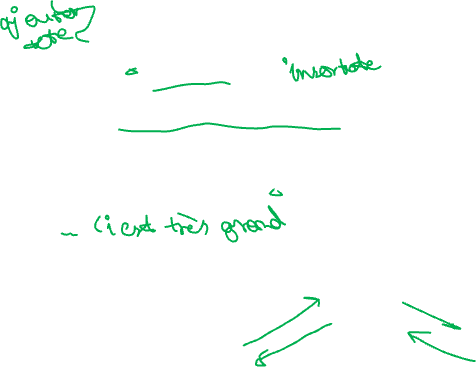 ajouter
tote
insertote
- c'est très grand